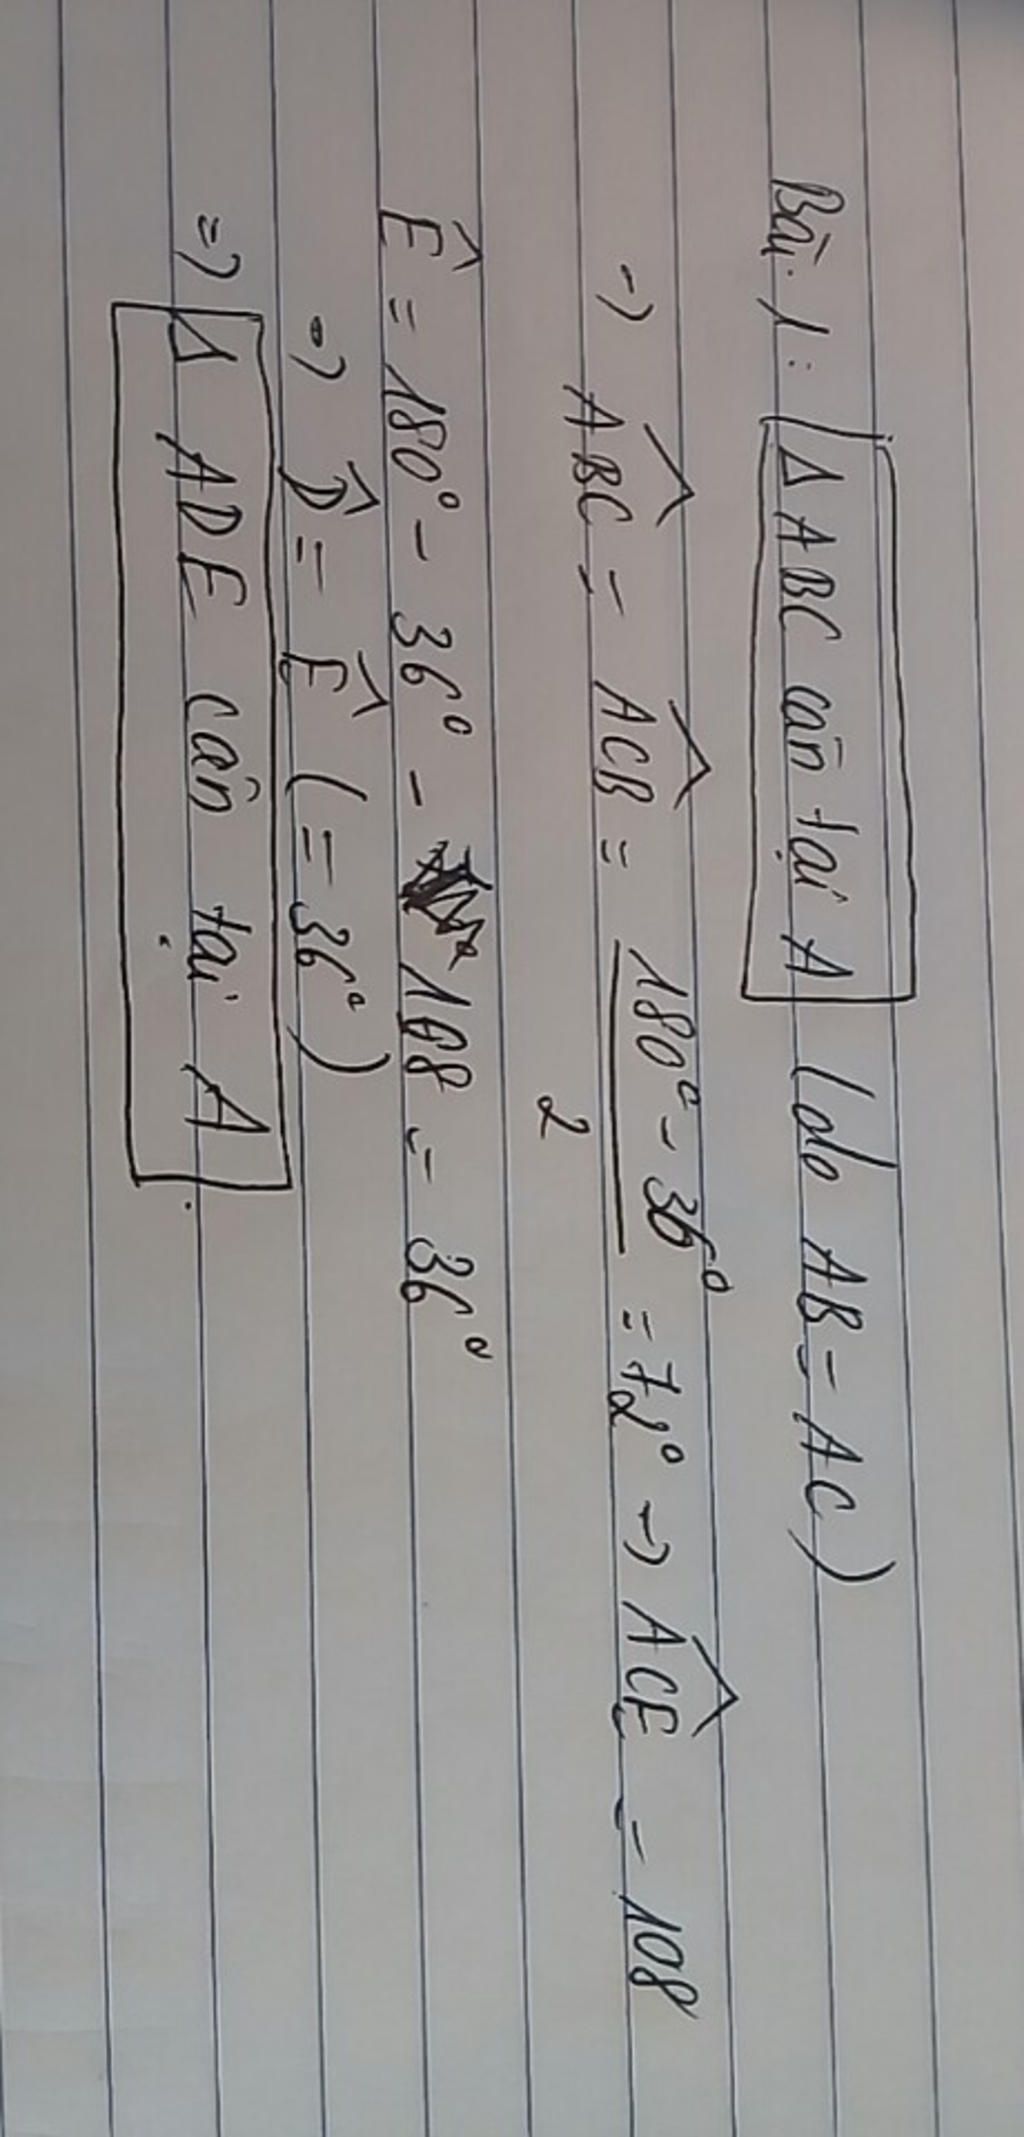 Bài 1: ΔABC cân tại A (do AB = AC)
→ ABC = ACB = 180° - 36° / 2 = 72° → ACE = 108
Ê = 180° - 36° - 108 = 36°
=> D̂ = Ê (= 36°)
=> Δ ADE cân tại A.